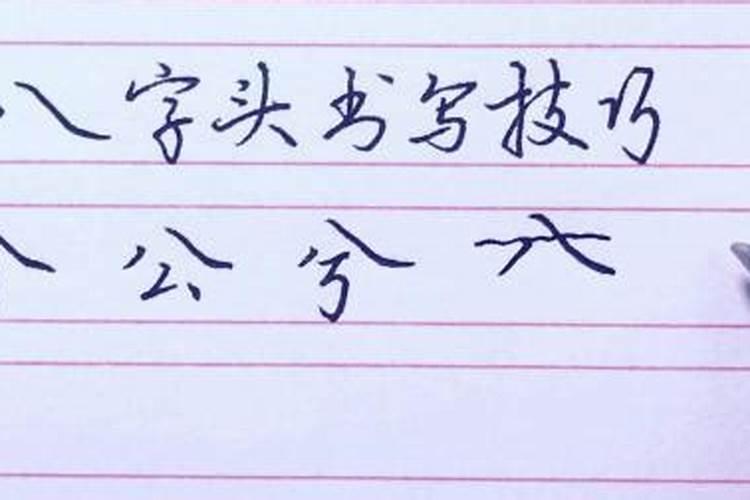 八字头书写技巧
八 公 兮 六